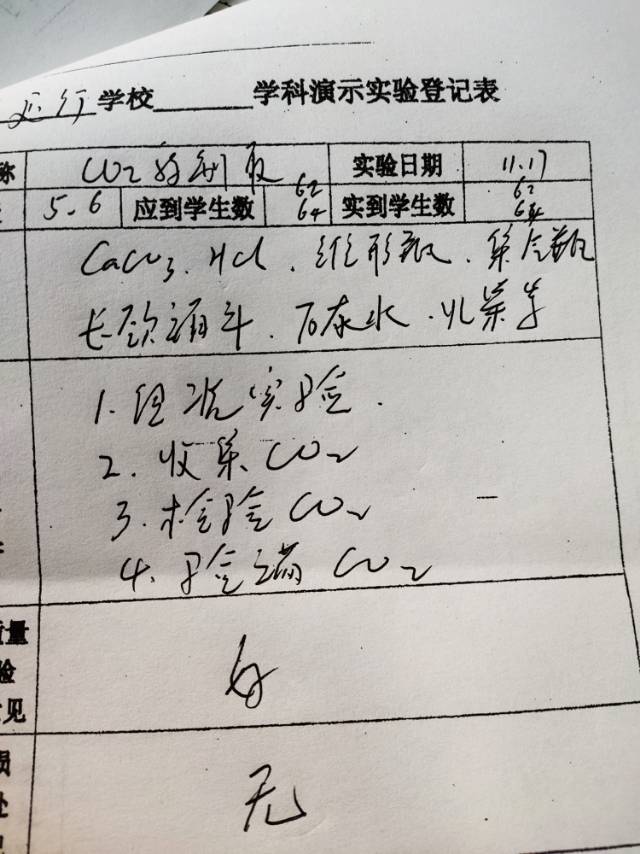 学校 学科演示实验登记表
称 CO2的制取 实验日期 11.17
5.6 应到学生数 62 64 实到学生数 62 64
CaCO3. HCl. 锥形瓶. 集气瓶
长颈漏斗. 石灰水.
1. 组装实验.
2. 收集CO2
3. 检验CO2
4. 验满CO2
质量
验 好
意见
损
处 无